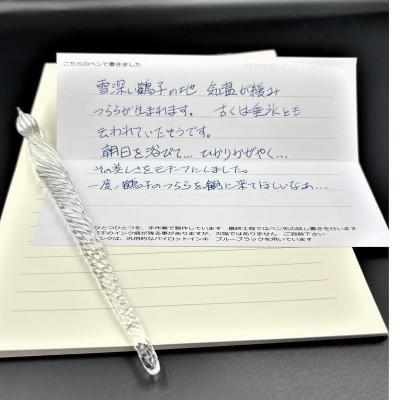 こちらのペンで書きました
雪深い鶴子の地 気温が緩み
つららが生まれます。 古くは垂氷とも
云われていたそうです。
朝日を浴びて… ひかりかがやく…
その美しさをモチーフにしました。
一度、鶴子のつららを観に来てほしいなぁ…
ひとつひとつを、手作業で製作しています 最終工程ではペン先の試し書きを行います
のインク痕が残る事がありますが、欠陥ではありません ご容赦下さい
ンクは、汎用的なパイロットインキ ブルーブラックを用いています